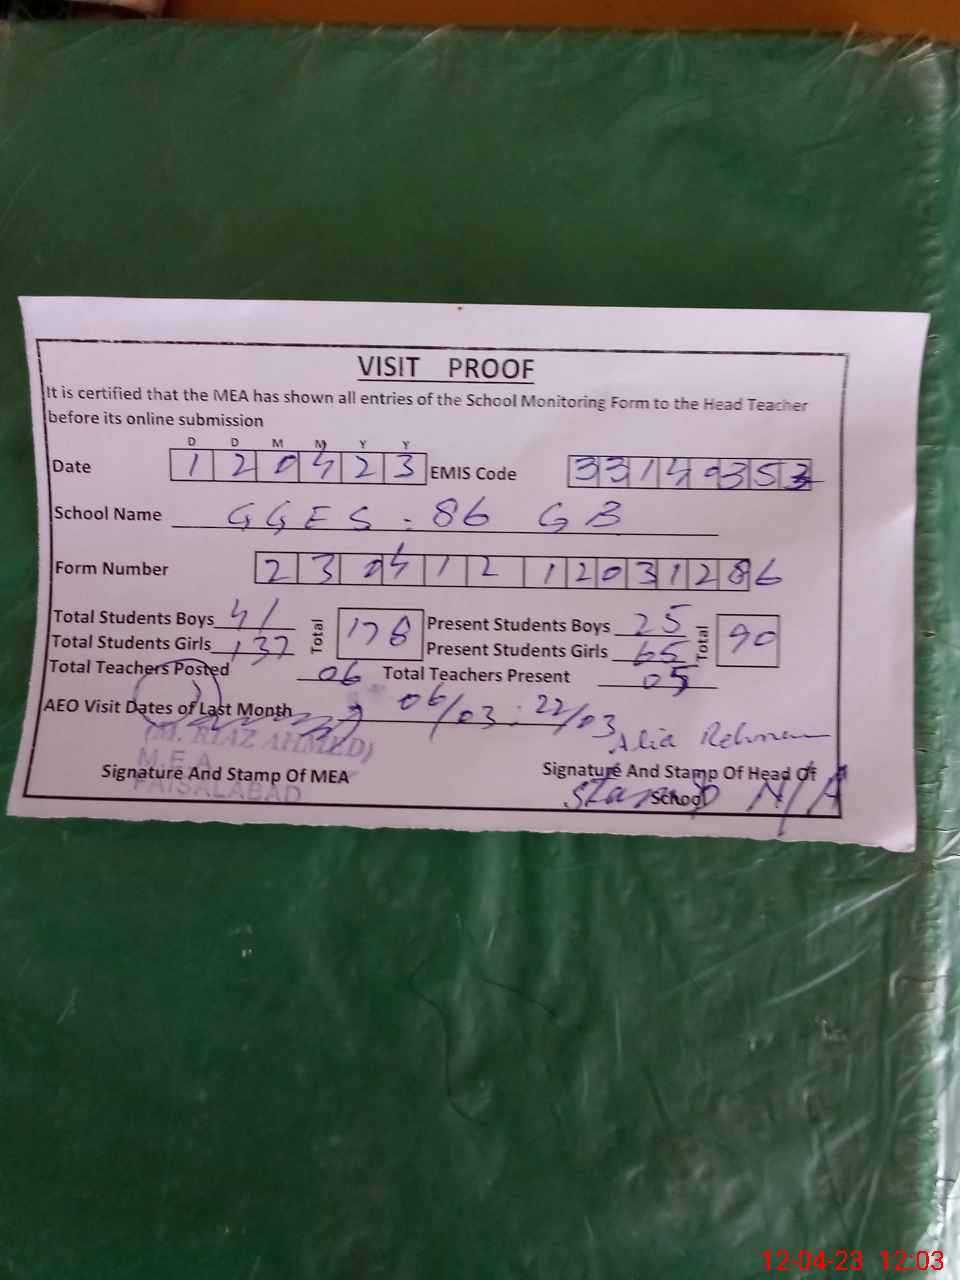 VISIT PROOF
It is certified that the MEA has shown all entries of the School Monitoring Form to the Head Teacher
before its online submission
D D M M Y Y
Date 1 2 0 4 2 3 EMIS Code 3 3 1 4 0 3 5 3
School Name GGES - 86 GB
Form Number 2 3 0 4 1 2 1 2 0 3 1 2 8 6
Total Students Boys 41 Total 178 Present Students Boys 25 Total 90
Total Students Girls 137 Present Students Girls 65
Total Teachers Posted 06 Total Teachers Present 05
AEO Visit Dates of Last Month 06/03 - 22/03
Alia Rehman
(M. RIAZ AHMED)
M.E.A
FAISALABAD
Signature And Stamp Of MEA
Signature And Stamp Of Head Of
School
Stamp N/A
12-04-23 12:03